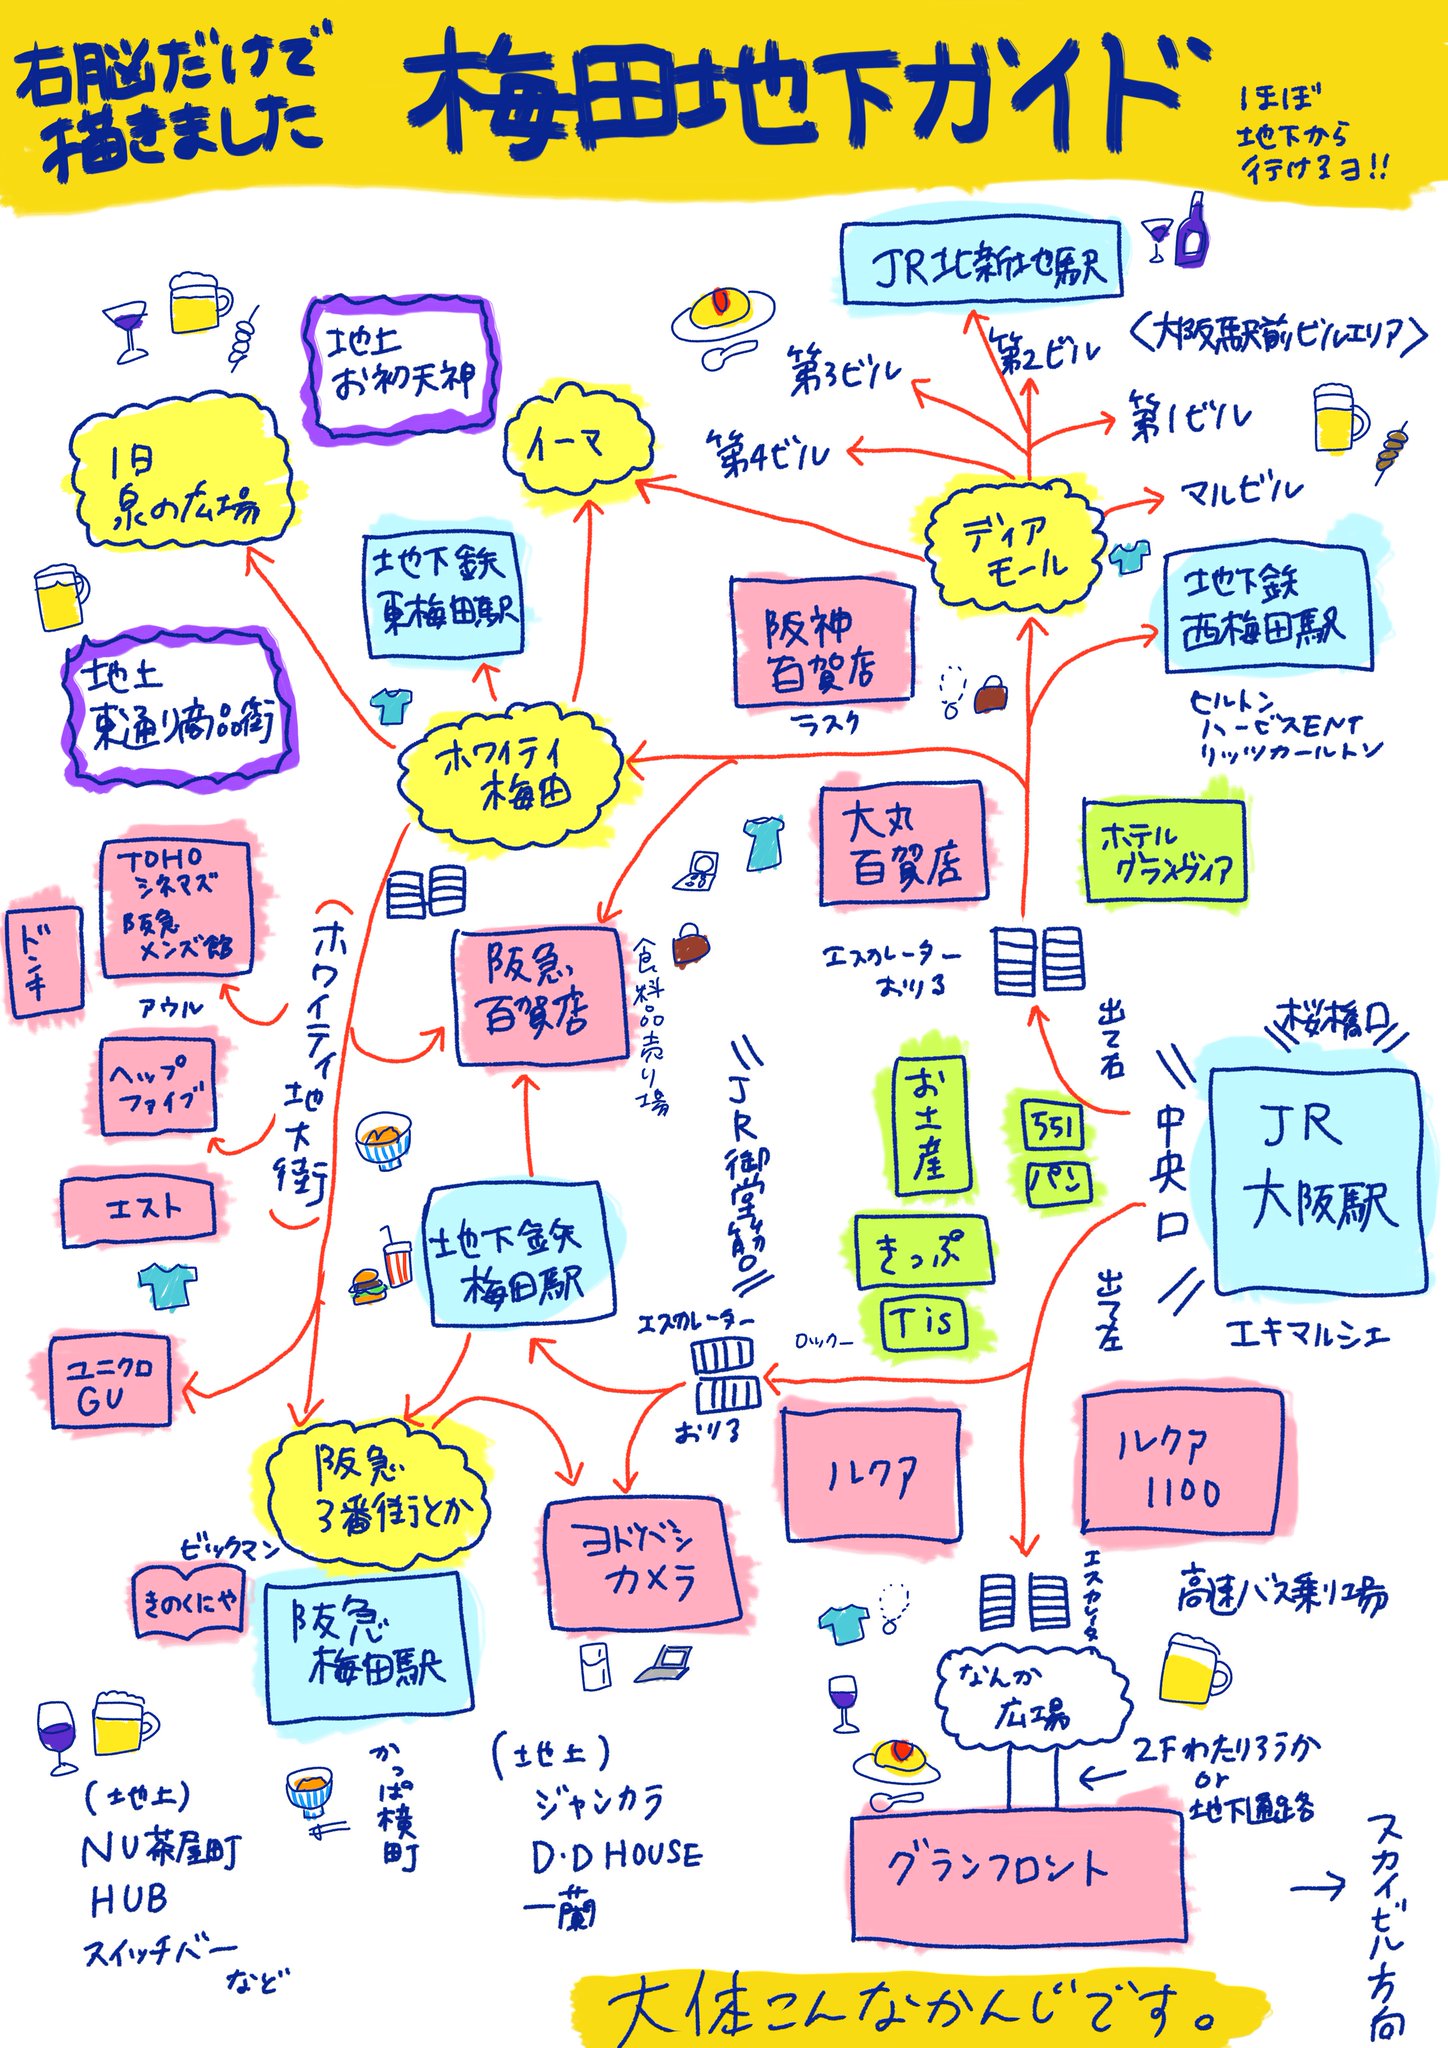 右脳だけで
描きました
梅田地下ガイド
ほぼ
地下から
行けるヨ!!
JR北新地駅
〈大阪駅前ビルエリア〉
第3ビル
第2ビル
第1ビル
第4ビル
マルビル
地上
お初天神
イーマ
1日
泉の広場
ディア
モール
地下鉄
東梅田駅
阪神
百貨店
ラスク
地下鉄
西梅田駅
ヒルトン
ハービスENT
リッツカールトン
地上
東通り商品街
ホワイティ
梅田
大丸
百貨店
ホテル
グランヴィア
TOHO
シネマズ
阪急
メンズ館
ドンキ
アウル
(ホワイティ地大街)
阪急
百貨店
食料品売り場
エスカレーター
おりる
出て右
桜橋口
ヘップ
ファイブ
エスト
JR御堂筋口
お土産
551
パン
中央口
JR
大阪駅
エキマルシェ
きっぷ
Tis
出て左
地下鉄
梅田駅
エスカレーター
おりる
ロッカー
ユニクロ
GU
ルクア
ルクア
1100
阪急
3番街とか
ビックマン
きのくにや
阪急
梅田駅
ヨドバシ
カメラ
エスカレータ
高速バス乗り場
なんか
広場
2Fわたりろうか
or
地下通路
グランフロント
スカイビル方向
(地上)
NU茶屋町
HUB
スイッチバー
など
かっぱ横町
(地上)
ジャンカラ
D・D HOUSE
一蘭
大体こんなかんじです。